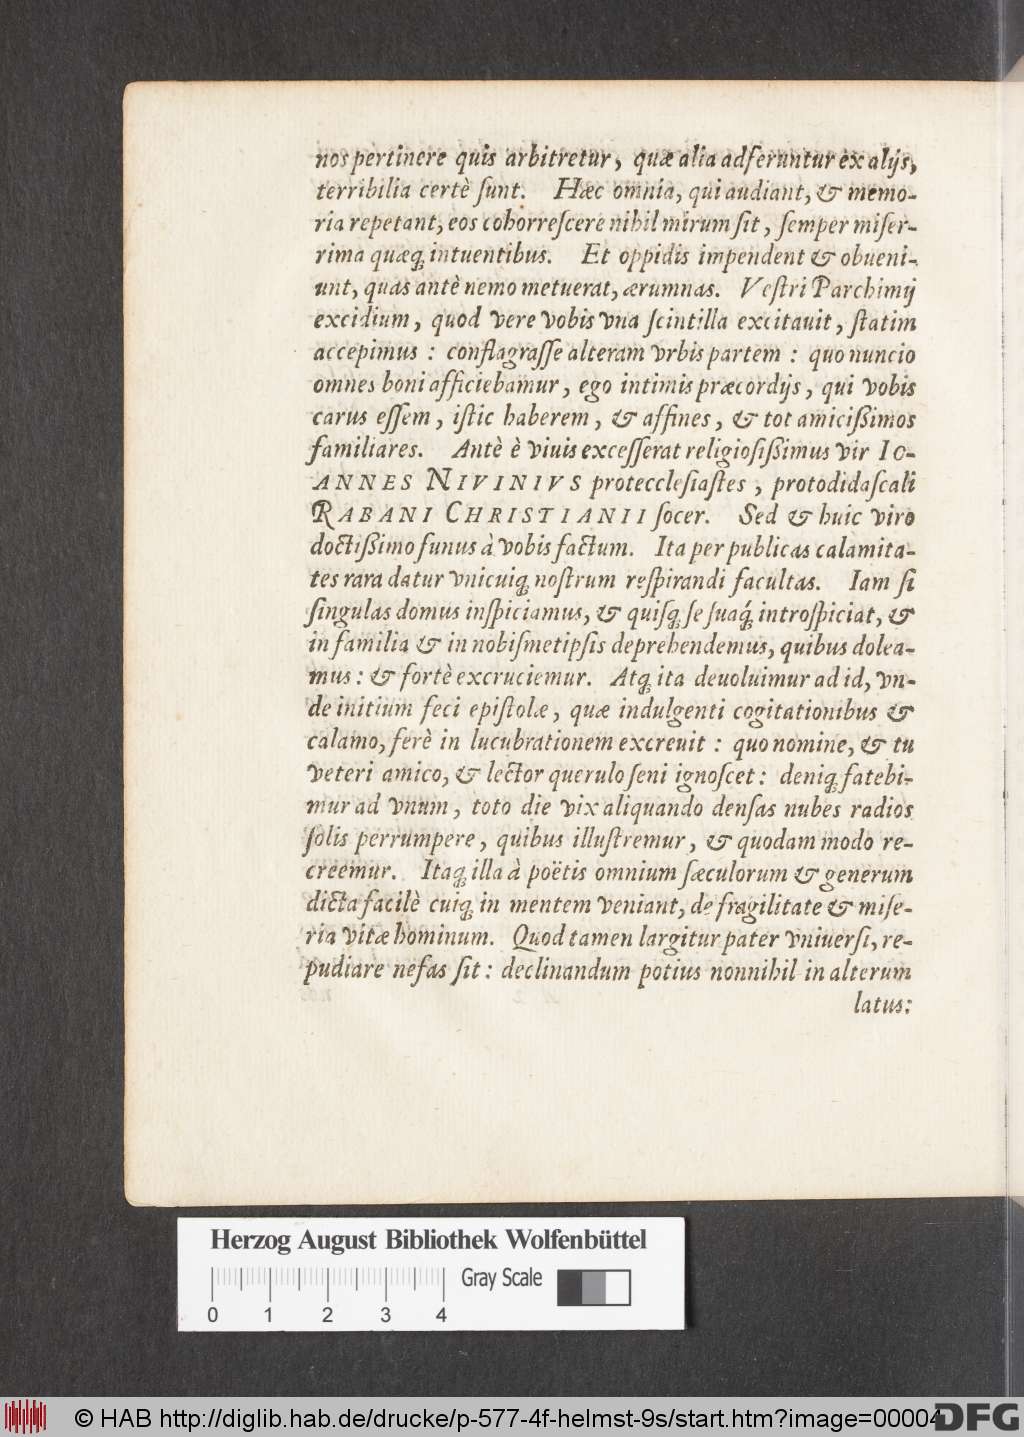 nos pertinere quis arbitretur, quæ alia adferuntur ex alijs,
terribilia certè ſunt. Hæc omnia, qui audiant, & memo-
ria repetant, eos cohorreſcere nihil mirum ſit, ſemper miſer-
rima quæq́ intuentibus. Et oppidis impendent & obueni-
unt, quas antè nemo metuerat, ærumnas. Veſtri Parchimij
excidium, quod vere vobis vna ſcintilla excitauit, ſtatim
accepimus : conflagraſſe alteram vrbis partem : quo nuncio
omnes boni afficiebamur, ego intimis præcordijs, qui vobis
carus eſſem, iſtic haberem, & affines, & tot amicißimos
familiares. Antè è viuis exceſſerat religioſißimus vir IO-
ANNES NIVINIVS proteccleſiaſtes, protodidaſcali
RABANI CHRISTIANII ſocer. Sed & huic viro
doctißimo funus à vobis factum. Ita per publicas calamita-
tes rara datur vnicuiq́ noſtrum reſpirandi facultas. Iam ſi
ſingulas domus inſpiciamus, & quiſq́ ſe ſuaq́ introſpiciat, &
in familia & in nobiſmetipſis deprehendemus, quibus dolea-
mus : & fortè excruciemur. Atq́ ita deuoluimur ad id, vn-
de initium feci epiſtolæ, quæ indulgenti cogitationibus &
calamo, ferè in lucubrationem excreuit : quo nomine, & tu
veteri amico, & lector querulo ſeni ignoſcet : deniq́ fatebi-
mur ad vnum, toto die vix aliquando denſas nubes radios
ſolis perrumpere, quibus illuſtremur, & quodam modo re-
creemur. Itaq́ illa à poëtis omnium ſæculorum & generum
dicta facilè cuiq́ in mentem veniant, de fragilitate & miſe-
ria vitæ hominum. Quod tamen largitur pater vniuerſi, re-
pudiare nefas ſit : declinandum potius nonnihil in alterum
latus:
Herzog August Bibliothek Wolfenbüttel
Gray Scale
0 1 2 3 4
© HAB http://diglib.hab.de/drucke/p-577-4f-helmst-9s/start.htm?image=00004
DFG